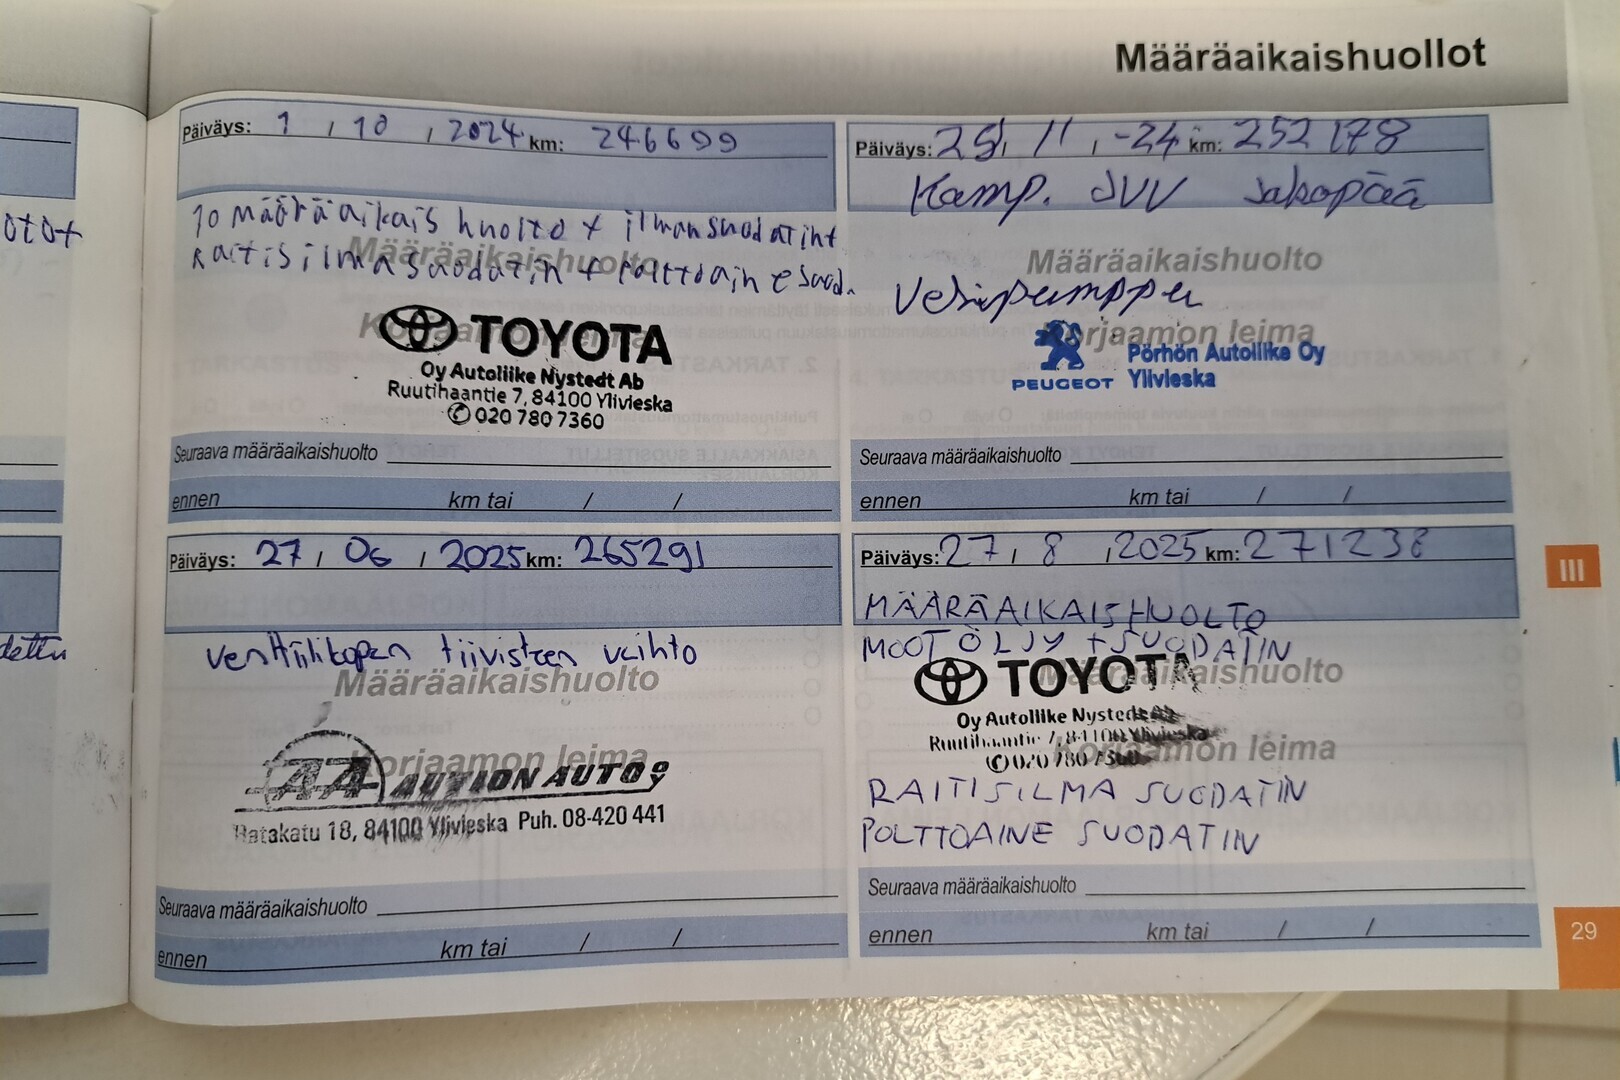 Määräaikaishuollot
Päiväys: 1 / 10 / 2024 km: 246699
10 määräaikais huolto + ilmansuodatint
Raitisilmasuodatin + Polttoaine suod.
Määräaikaishuolto
TOYOTA
Oy Autoliike Nystedt Ab
Ruutihaantie 7, 84100 Ylivieska
020 780 7360
Seuraava määräaikaishuolto
ennen km tai / /
Päiväys: 25 / 11 / -24 km: 252178
Kamp. JVV Jakopää
Määräaikaishuolto
Vesipumppu
Korjaamon leima
PEUGEOT
Pörhön Autoliike Oy
Ylivieska
Seuraava määräaikaishuolto
ennen km tai / /
Päiväys: 27 / 06 / 2025 km: 265291
Venttiilikopan tiivisteen vaihto
Määräaikaishuolto
Korjaamon leima
AA AUTION AUTO OY
Ratakatu 18, 84100 Ylivieska Puh. 08-420 441
Seuraava määräaikaishuolto
ennen km tai / /
Päiväys: 27 / 8 / 2025 km: 271238
MÄÄRÄAIKAISHUOLTO
MOOT ÖLJY + SUODATIN
Määräaikaishuolto
TOYOTA
Oy Autoliike Nystedt Ab
Ruutihaantie 7, 84100 Ylivieska
Korjaamon leima
020 780 7360
RAITISILMA SUODATIN
POLTTOAINE SUODATIN
Seuraava määräaikaishuolto
ennen km tai / /
III
29